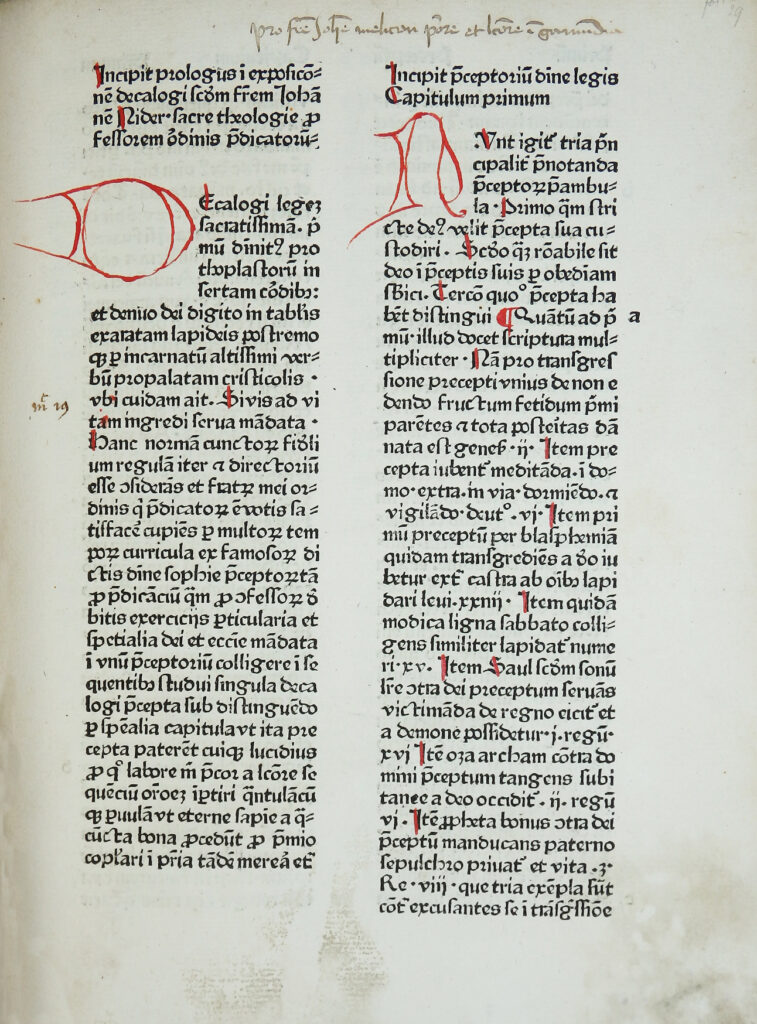 pro fr̄e Joh̄e melicon p̄ore et lc̄ore ī
Incipit prologus ī exposicō⸗
nē decalogi scd̄m frēm Johā
nē Nider·sacre theologie ꝓ
fessorem ōdinis p̄dicatorū⸗
DEcalogi legeꝫ
sacratissimā· p̄
mū diīnitꝰ pro
thoplastorū in
sertam cōdibꝫ:
et denuo dei digito in tabłis
exaratam lapideis postremo
qꝫ ꝑ incarnatū altissimi ver⸗
bū propalatam cristicolis ·
vbi cuidam ait· Si vis ad vi
tam ingredi serua mādata ·
Hanc normā cunctoꝝ fidłi
um regulā iter ⁊ directoriū
esse ꝯsiderās et fratꝝ mei or⸗
dinis q̇ p̄dicatoꝝ ē votis sa⸗
tisfacē cupiēs ꝑ multoꝝ tem
poꝝ curricula ex famosoꝝ di
ctis diīne sophie p̄ceptoꝝ tā
ꝓ p̄dicāciū qm̄ ꝓ ꝯfessoꝝ ð
bitis exercicijs ꝑticularia et
spetialia dei et eccīe mādata
ī vnū p̄ceptoriū colligere ī se
quentibꝫ studui singula deca
logi p̄cepta sub distinguēdo
ꝑ spēalia capitula vt ita pre
cepta paterēt cuiqꝫ lucidius
ꝓ qᵒ labore m̄ p̄cor a lc̄ore se
quēciū or̄oeꝫ īꝑtiri q̄ntulācū
qꝫ ꝑuulā vt eterne sapīe a q̄⸗
cūcta bona ꝓcedūt ꝓ p̄mio
copłari ī pr̄ia tādē mereā et̄
m̄ͨ 19
Incipit p̄ceptoriū diīne legis
Capitulum primum
NVnt igit᷑ tria p̄n
cipalit᷑ p̄notanda
p̄ceptoꝝ p̄ambu⸗
la· Primo qm̄ stri
cte deꝰ velit p̄cepta sua cu⸗
stodiri · Scd̄o qꝫ rōabile sit
deo ī p̄ceptis suis ꝑ obediam
sb̄ici· Tercō quoᵒ p̄cepta ha
bēt distingui ¶ Quātū ad p̄
a
mū· illud docet scriptura mul⸗
tipliciter · Nā pro transgres
sione precepti vnius de non e
dendo fructum fetidum p̄mi
parētes ⁊ tota posteītas dā
nata est genes̄· ii· Item pre
cepta iubent᷑ meditāda· ī do⸗
mo·extra·in via·dormiēdo·⁊
vigilādo·deutᵒ·vj·Item pri
mū preceptū per blasphemiā
quidam transgrediēs a ðo iu
betur ext̄ castra ab oībꝫ lapi
dari leui·xxnij · Item quidā
modica ligna sabbato colli⸗
gens similiter lapidat᷑ nume
ri·xv· Item Saul scd̄m sonū
lr̄e ꝯtra dei preceptum seruās
victimāda de regno eicit᷑ et
a demone possidetur·j·regū·
xvj Itē oza archam cōtra do
mini p̄ceptum tangens subi
tanee a deo occidit᷑ · ii· regū
vj · Itē ꝓpheta bonus ꝯtra dei
p̄ceptū manducans paterno
sepulchro priuat᷑ et vita ·3·
Re·viij·que tria exēpla sūt
cōt᷑ excusantes se ī trāsg̊ssiōe